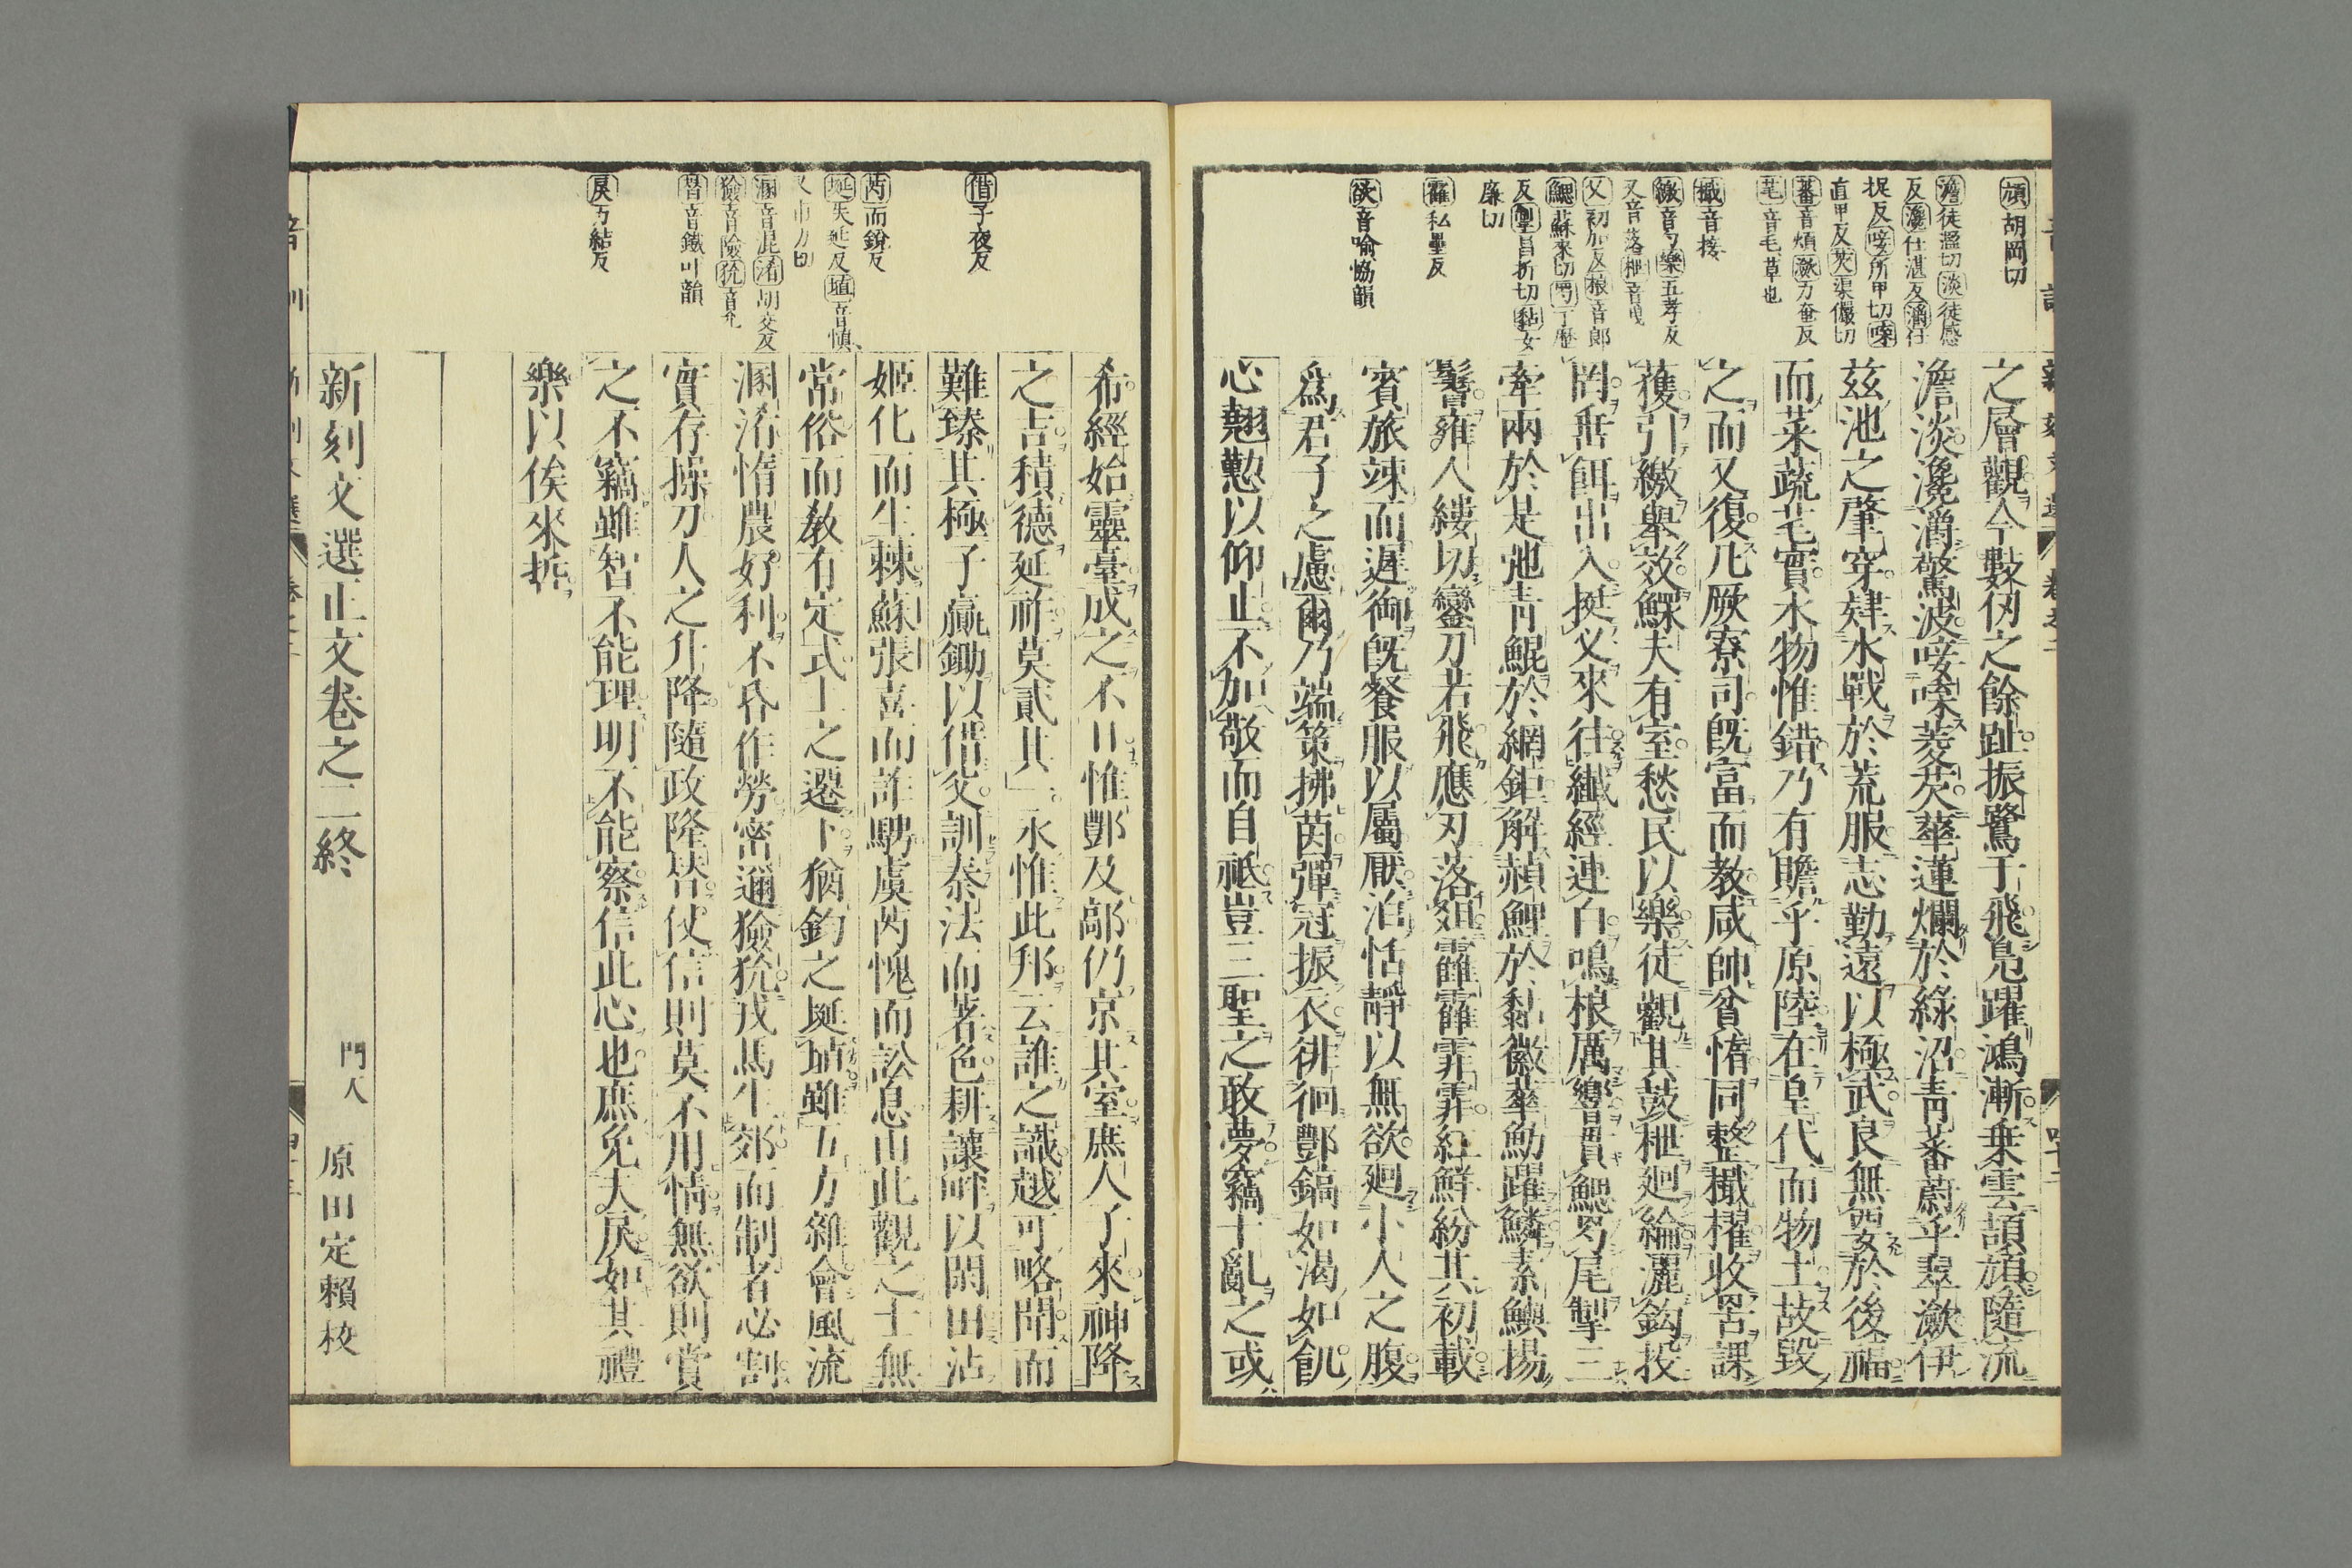 頏胡岡切
澹徒濫切淡徒感
反瀺仕湛反灂仕
捉反唼所甲切喋
直甲反芡渠儼切
蕃音煩瀲力奄反
芼音毛草也
檝音接
繳音勺樂五孝反
又音落枻音曳
叉初加反桹音郎
鰓蘇來切丁歷
反掣昌折切黏女
廉切
靃私壘反
欲音喩恊韻
之層觀今數仭之餘趾振鷺于飛鳧躍鴻漸乗雲頡頏隨流
澹淡瀺灂驚波唼喋菱芡華蓮爛於綠沼青蕃蔚乎翠瀲伊
茲池之肇穿肄水戰於荒服志勤遠以極武良無要於後福
而菜蔬芼實水物惟錯乃有贍乎原陸在皇代而物土故毀
之而又復凡厥寮司旣富而教咸帥貧惰同整檝櫂收罟課
獲引繳舉效鰥夫有室愁民以樂徒觀其鼓枻廻綸灑鈎投
罔垂餌出入挺叉來往纎經連白鳴桹厲響貫鰓尾掣三
牽兩於是弛青鯤於網鉅解赬鯉於黏徽華魴躍鱗素鱮揚
鬐雍人縷切鑾刀若飛應刃落俎靃靃霏霏紅鮮紛其初載
賓旅竦而遲御旣餐服以屬厭泊恬靜以無欲廻小人之腹
爲君子之慮爾乃端策拂茵彈冠振衣徘徊酆鎬如渴如飢
心翹懃以仰止不加敬而自祗豈三聖之敢夢竊十亂之或
僭子夜反
芮而銳反
埏失延反埴音愼
溷音混淆胡交反
獫音險狁音允
朁音鐵叶韻
戾力結反
希經始靈臺成之不日惟酆及鄗仍京其室庶人子來神降
之吉積德延祚莫貳其一永惟此邦云誰之識越可略聞而
難臻其極子贏鋤以借父訓秦法而著色耕讓畔以閑田沾
姬化而生棘蘇張喜而詐騁虞芮愧而訟息由此觀之土無
常俗而教有定式上之遷下猶鈞之埏埴雖五方雜會風流
溷淆惰農好利不昏作勞密邇獫狁戎馬生郊而制者必割
實存操刀人之升降隨政隆替仗信則莫不用情無欲則賞
之不竊雖智不能理明不能察信此心也庶免夫戾如其禮
樂以俟來哲
新刻文選正文卷之二終
門人　原田定賴校